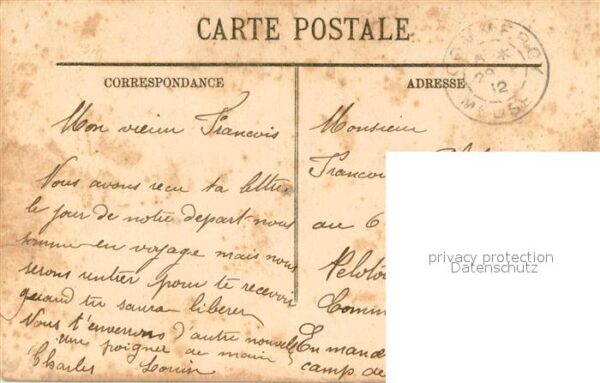 CARTE POSTALE
CORRESPONDANCE
Mon vieux Francois
Nous avons recu ta lettre
le jour de notre depart nous
somme en voyage mais nous
serons rentrer pour te recevoir
quand tu saura liberer
Nous t'enverrons d'autre nouvelle
une poignee de main
Charles Louis
ADRESSE
Monsieur
Francoi
au 6
Peloto
Comm
En mana
camp de
COMMERCY
29
12
MEUSE
privacy protection
Datenschutz